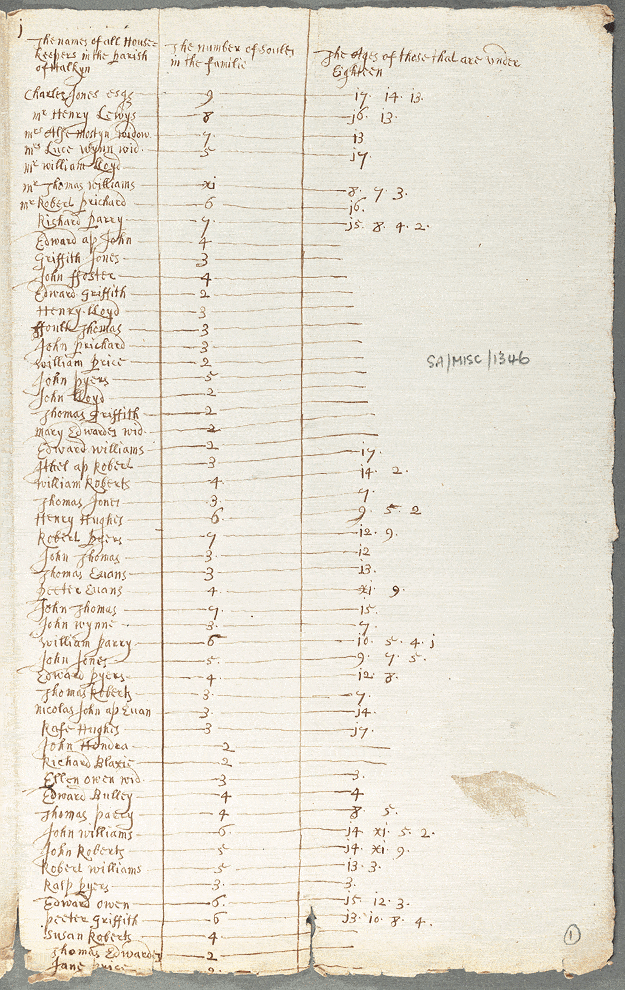 j
The names of all House keepers in the parish of Halkyn
The number of Soules in the familie
The Ages of those that are under Eighteen
Charles Jones esqz 9 17. 14. 13.
mr Henry Lewys 8 16. 13.
mrs Alse Mostyn widow 7 13
mrs Luce wynn wid. 5 17.
mr william lloyd
mr Thomas williams xi 8. 7. 3.
mr Robert prichard 6 16.
Richard parry 7. 15. 8. 4. 2.
Edward ap John 4
Griffith Jones 3
John ffoster 4
Edward Griffith 2
Henry lloyd 3
ffoulk Thomas 3
John prichard 3
william price 2
John pyers 5
John lloyd 2
Thomas Griffith 2
mary Edwardes wid. 2
Edward williams 2 17.
Ithel ap Robert 3 14. 2.
william Roberts 4 7
Thomas Jones 3
Henry Hughes 6 9. 5. 2
Robert pyers 7 12. 9.
John Thomas 3 12
Thomas Evans 3 13.
peeter Evans 4 xi. 9.
John Thomas 7 15.
John wynne 3 7.
william parry 6 10. 5. 4. j
John Jones 5 9. 7. 5.
Edward pyers 4 12. 8.
Thomas Roberts 3 7.
nicolas John ap Evan 3 14.
Rafe Hughes 3 17.
John Hendra 2
Richard Blaxie 2
Ellen owen wid. 3 3.
Edward Bulley 4 4
Thomas parry 4 8. 5.
John williams 6. 14. xi. 5. 2.
John Roberts 5 14. xi. 9.
Robert williams 5 13. 3.
Ralp pyers 3. 3.
Edward owen 6. 15. 12. 3.
peeter Griffith 6 13. 10. 8. 4.
Susan Roberts 4
Thomas Edwardes 2
Jane price 2.
SA/MISC/1346
1